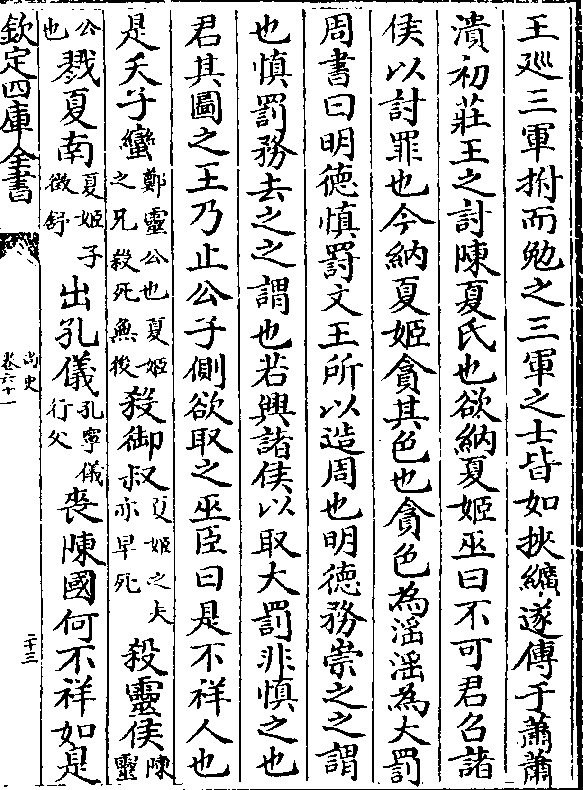 王廵三軍拊而勉之三軍之士皆如挾纊遂傅于蕭蕭
潰初莊王之討陳夏氏也欲納夏姬巫曰不可君召諸
侯以討罪也今納夏姬貪其色也貪色為淫淫為大罰
周書曰明徳慎罰文王所以造周也明徳務崇之之謂
也慎罰務去之之謂也若興諸侯以取大罰非慎之也
君其圖之王乃止公子側欲取之巫臣曰是不祥人也
是夭子蠻鄭靈公也夏姬之兄殺死無後殺御叔夏姬之夫亦早死殺靈侯陳靈
公也戮夏南夏姬子徵舒出孔儀孔寧儀行父喪陳國何不祥如是
欽定四庫全書
尚史
卷六十一
二十三